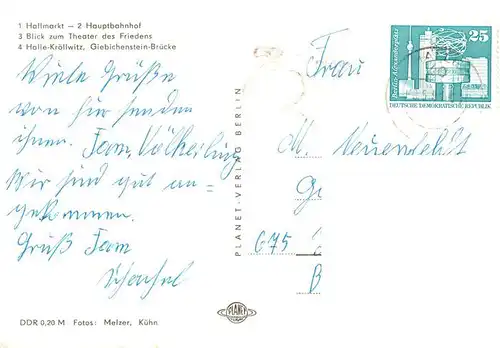 1 Hallmarkt – 2 Hauptbahnhof
3 Blick zum Theater des Friedens
4 Halle-Kröllwitz, Giebichenstein-Brücke
Viele Grüße
von hir senden
ihnen. Fam. Völkerling
Wir sind gut an=
gekommen.
Gruß Fam
DDR 0,20 M Fotos: Melzer, Kühn
PLANET-VERLAG BERLIN
PLANET
Berlin, Alexanderplatz
25
DEUTSCHE DEMOKRATISCHE REPUBLIK
Frau
M.
G
675
B